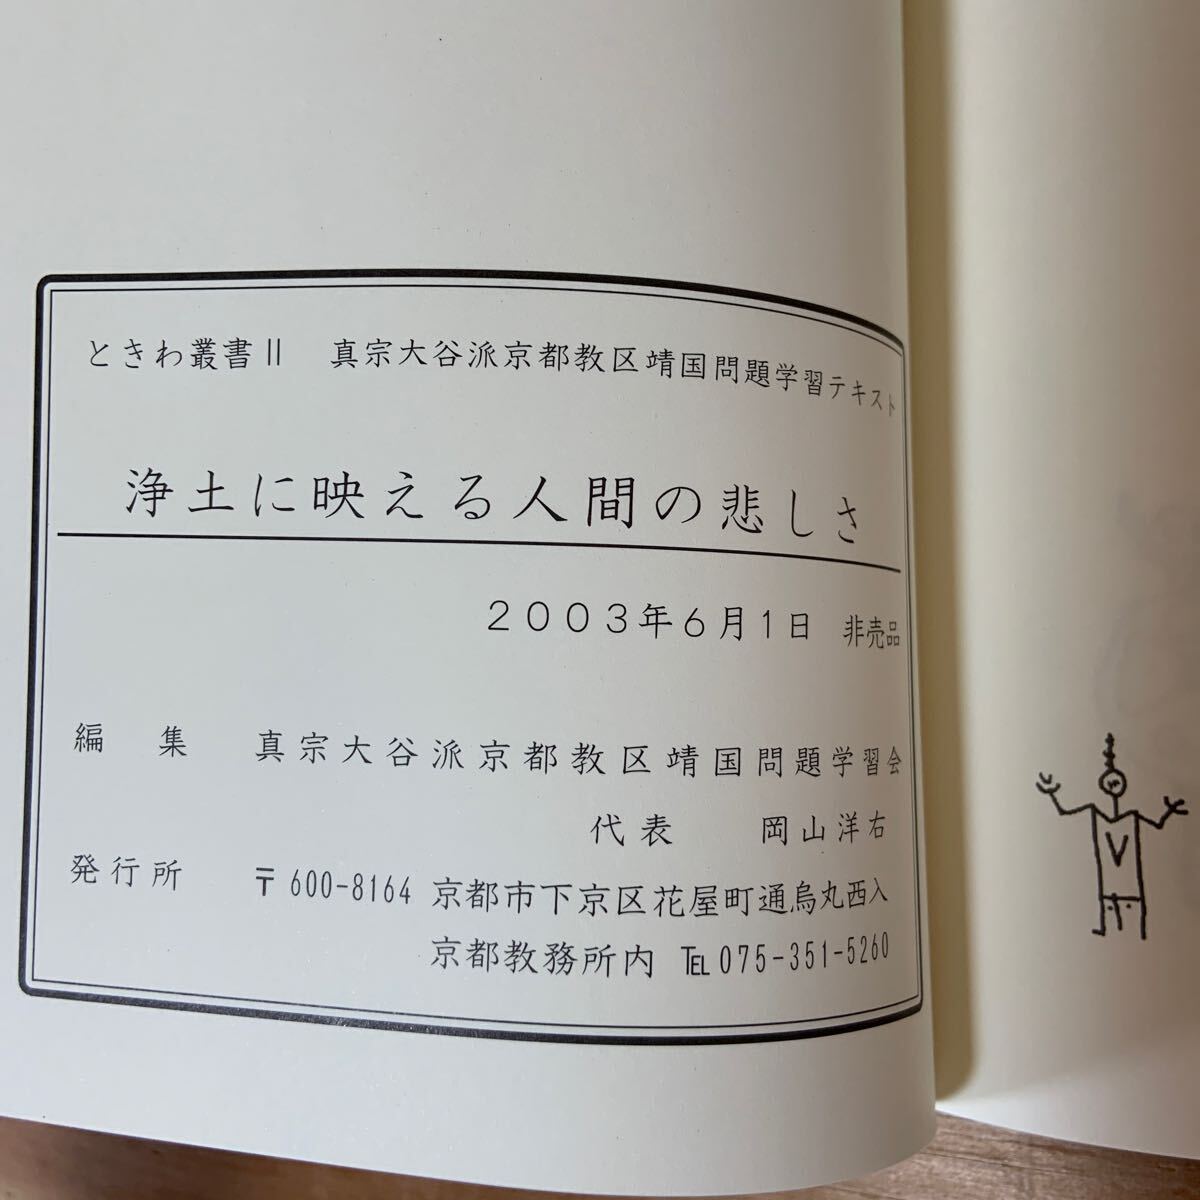 ときわ叢書Ⅱ　真宗大谷派京都教区靖国問題学習テキスト
浄土に映える人間の悲しさ
２００３年６月１日　非売品
編　集　真宗大谷派京都教区靖国問題学習会
代表　岡山洋右
発行所　〒600-8164 京都市下京区花屋町通烏丸西入
京都教務所内　℡075-351-5260
V